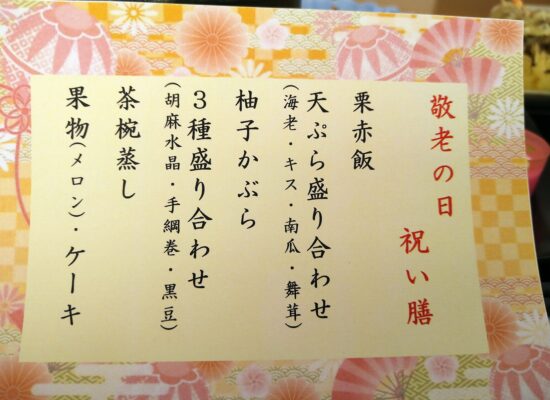 敬老の日
祝い膳
栗赤飯
天ぷら盛り合わせ
(海老・キス・南瓜・舞茸)
柚子かぶら
３種盛り合わせ
(胡麻水晶・手綱巻・黒豆)
茶椀蒸し
果物(メロン)・ケーキ